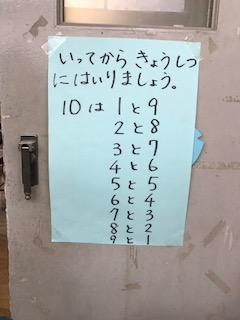 いってから きょうしつ
にはいりましょう。
10は 1と9
2と8
3と7
4と6
5と5
6と4
7と3
8と2
9と1